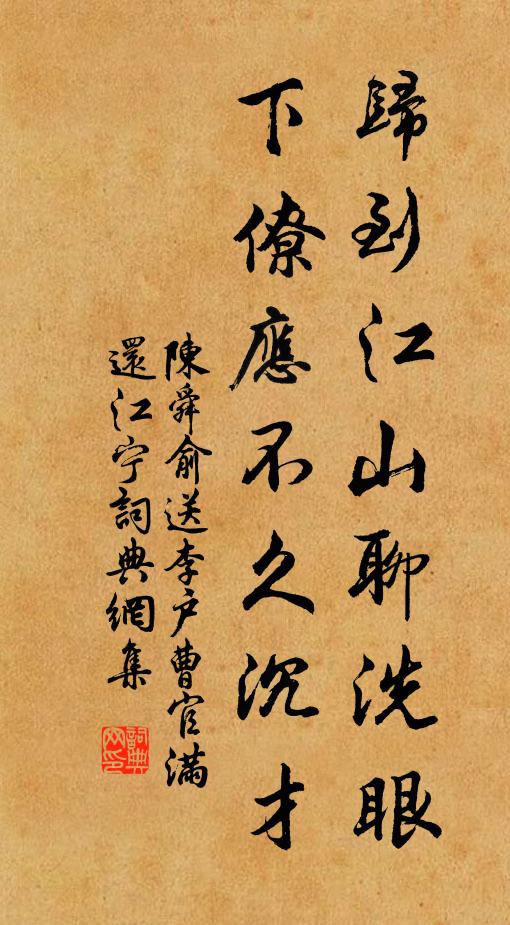 歸到江山聊洗眼
下僚應不久沉才
陳舜俞送李户曹官滿
還江宁詞典網集
詞典
网印